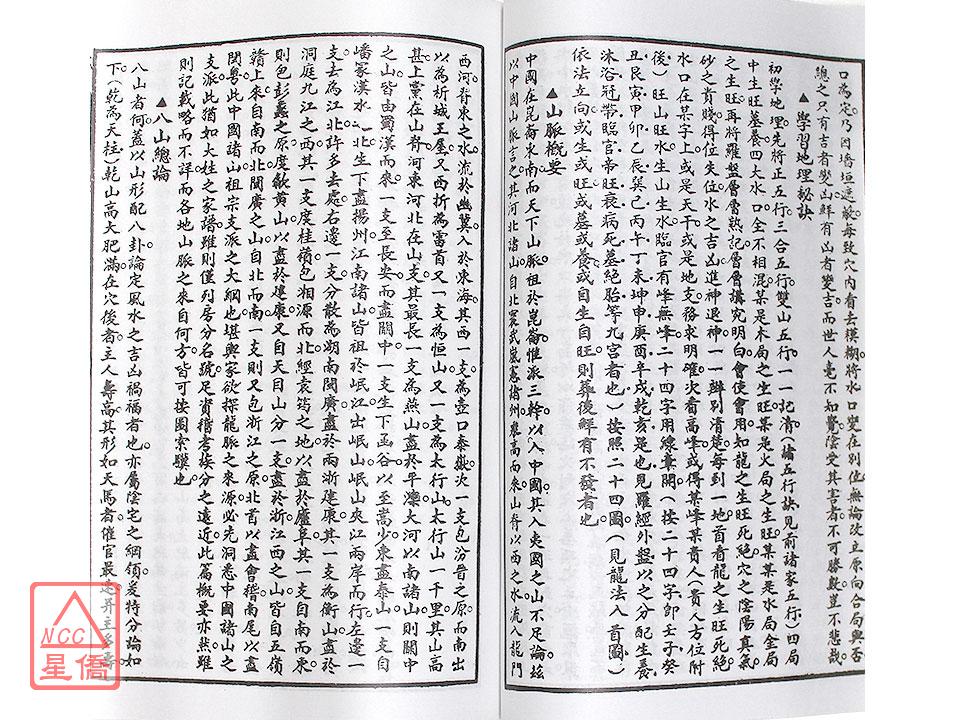 口為定乃因墻垣遮蔽每致穴內看去模糊將水口變在別位無論改立原向合局與否
總之只有吉者變凶鮮有凶者變吉而世人毫不知驚陰受其害者不可勝數豈不悲哉
▲學習地理秘訣
初學地理先將正五行三合五行雙山五行一一記清（諸五行訣見前諸家五行）四局
中生旺墓養四大水口全不相混某是木局之生旺某是火局之生旺某某是水局金局
之生旺再將羅盤層層熟記層層講究明白會使會用知龍之生旺死絕穴之陰陽真氣
砂之貴賤得位失位水之吉凶進神退神一一辨別清楚每到一地首看龍之生旺死絕
水口在某字上或是天干或是地支務求明確次看高峰或得某峰貴人（貴人方位附
後）山旺水生山生水臨官有峰無峰二十四字用線牽開（按二十四字即壬子癸
丑艮寅甲卯乙辰巽巳丙午丁未坤申庚酉辛戌乾亥是也見羅經外盤以之分配生養
沐浴冠帶臨官帝旺衰病死墓絕胎等九宮者也）按照二十四圖（見龍法入首圖）
依法立向或生或旺或墓或養或自生自旺則葬後鮮有不發者也
▲山脈概要
中國在崑崙東南而天下山脈祖於崑崙惟派三幹以入中國其入夷國之山不足論茲
以中國山脈言之其河北諸山自北寰武嵐憲諸州乘高而來山脊以西之水流入龍門
西河脊東之水流於幽冀入於東海其西一支為壺口泰嶽次一支包汾晉之原而南出
以為析城王屋又西折為雷首又一支為恒山又一支為太行山太行山一千里其山高
甚上黨在山脊河東河北在山支其最長一支為燕山盡於平灤大河以南諸山則關中
之山皆由蜀漢而來一支至長安而盡關中一支生下函谷以至嵩少東盡泰山一支自
嶓冢漢水一北生下盡揚州江南諸山皆祖於岷江出岷山岷山夾江兩岸而行左邊一
支去為江北許多去處右邊一支分散為湖南閩廣盡於兩浙建康其一支為衡山盡於
洞庭九江之西其一支度桂嶺包湘源而北經袁筠之地以盡於廬阜其一支自南而東
則包彭蠡之原度歙黃山以盡於建康又自天目山分一支盡於浙江西之山皆自五嶺
贛上來自南而北閩廣之山自北而南一支則又包浙江之原北首以盡會稽南尾以盡
閩粵此中國諸山祖宗支派之大綱也堪輿家欲探龍脈之來源必先洞悉中國諸山之
支派此猶如大姓之家譜雖則僅列房分名號足資稽考挨分之遠近此篇概要亦然雖
則記載略而不詳而各地山脈之來自何方皆可按圖索驥也
▲八山總論
八山者何蓋以山形配八卦論定風水之吉凶禍福者也亦屬陰宅之綱領爰特分論如
下（乾為天柱）乾山高大肥滿在穴後者主人壽高其形如天馬者催官最速并主多壽
NCC
星僑